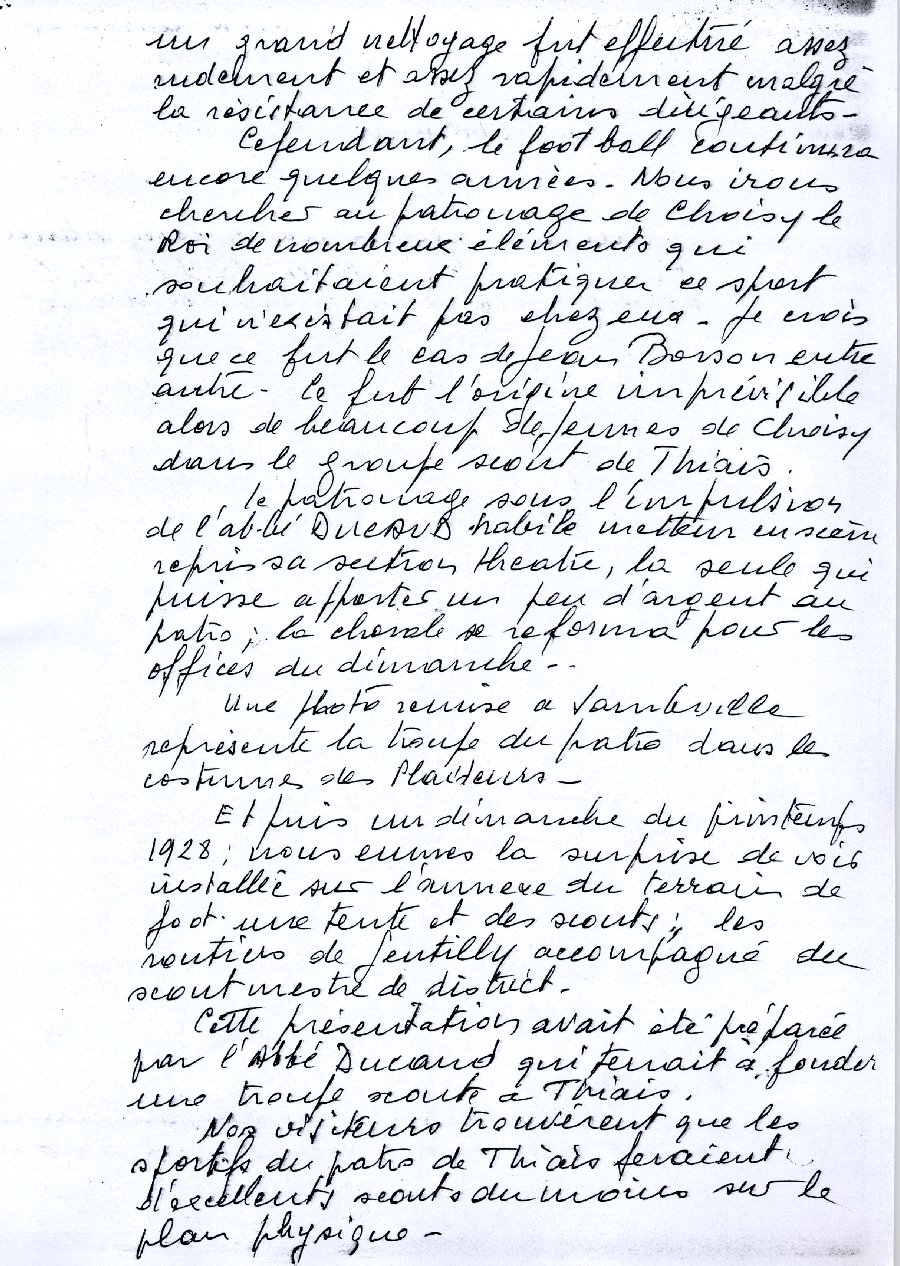 un grand nettoyage fut effectué assez
rudement et assez rapidement malgré
la résistance de certains dirigeants-
Cependant, le foot ball continura
encore quelques années. Nous irons
chercher au patronage de Choisy le
Roi de nombreux éléments qui
souhaitaient pratiquer ce sport
qui n'existait pas chez eux - Je crois
que ce fut le cas de Jean Bosson entre
autre - Ce fut l'origine imprévisible
alors de beaucoup de jeunes de Choisy
dans le groupe scout de Thiais.
le patronage sous l'impulsion
de l'abbé DUCAUD habile metteur en scène
repris sa section theatre, la seule qui
puisse apporter un peu d'argent au
patro ; la chorale se reforma pour les
offices du dimanche--
Une photo remise a Jambville
représente la troupe du patro dans les
costumes des Plaideurs -
Et puis un dimanche du printemps
1928 ; nous eumes la surprise de voir
installée sur l'annexe du terrain de
foot une tente et des scouts ; les
routiers de Gentilly accompagné du
scoutmestre de district.
Cette présentation avait été préparée
par l'Abbé Ducaud qui tenait à fonder
une troupe scoute a Thiais.
Nos visiteurs trouvèrent que les
sportifs du patro de Thiais feraient
d'excellents scouts du moins sur le
plan physique -